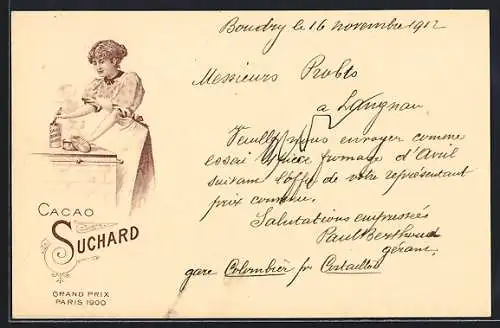 Boudry le 16 novembre 1912
Messieurs Probst
a Langnau
Veuillez nous envoyer comme
essai fromage d'Avril
suivant l'offre de votre représentant
prix connu.
Salutations empressées
Paul Berthoud
gérant.
gare Colombier pr Cortaillod
CACAO
SUCHARD
GRAND PRIX
PARIS 1900